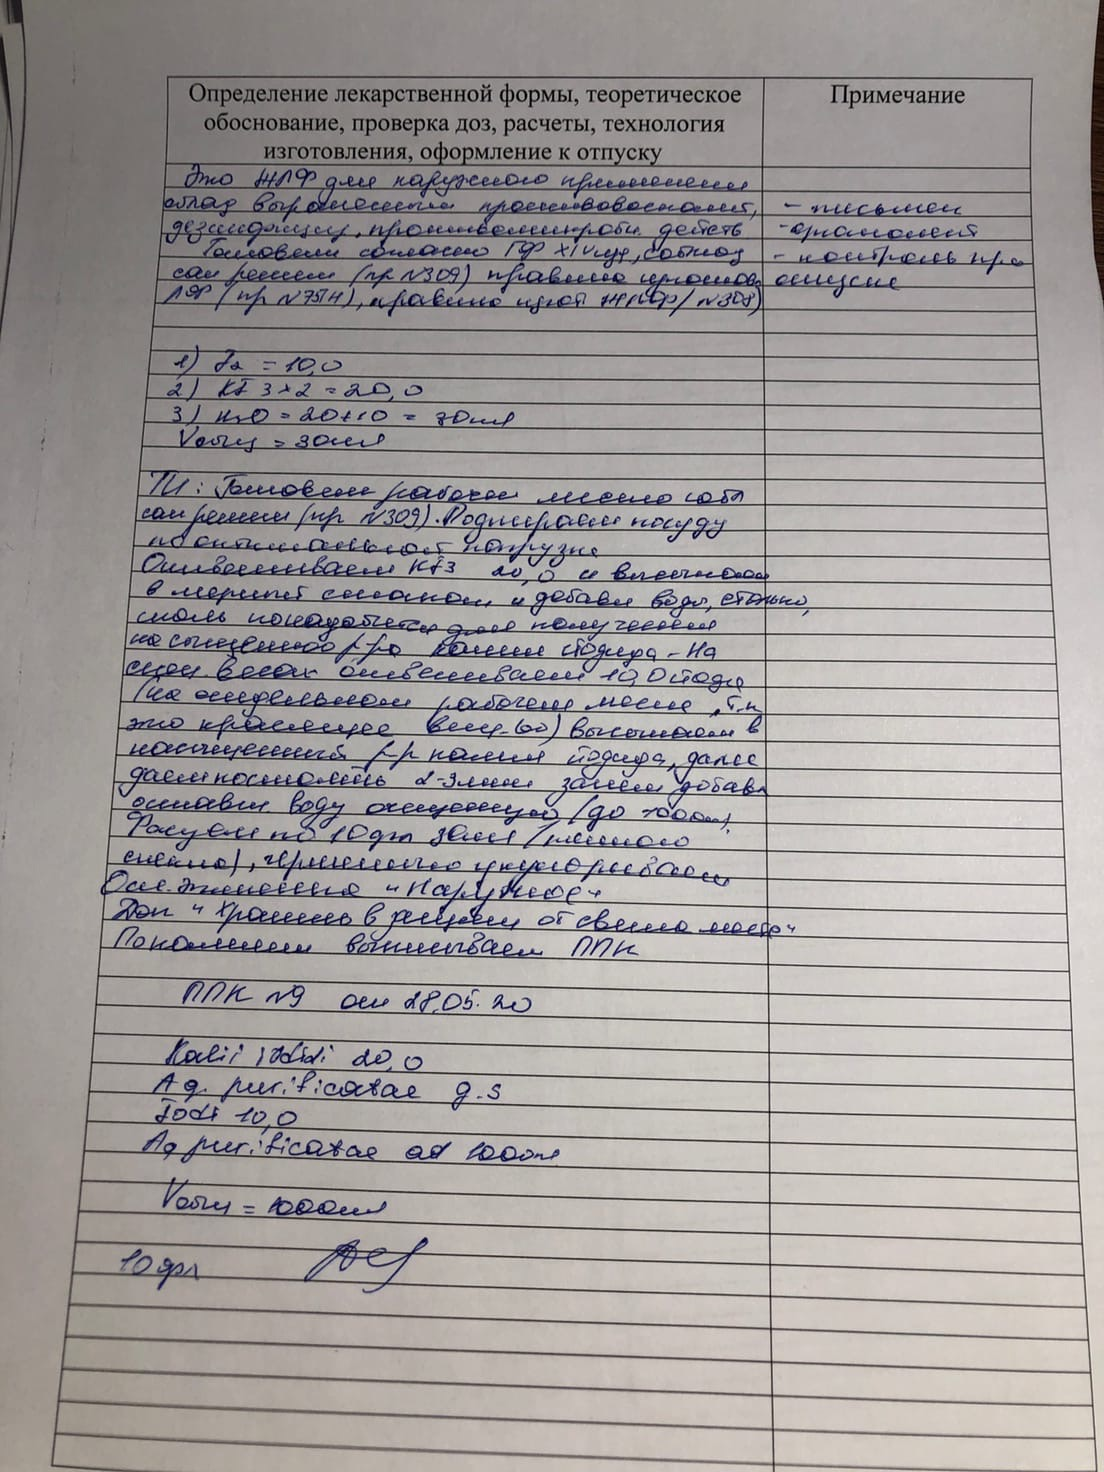 Определение лекарственной формы, теоретическое
обоснование, проверка доз, расчеты, технология
изготовления, оформление к отпуску
Примечание
Это ЖЛФ для наружного применения
облад выраженным противовоспалит,
- письмен
дезинфицир, противомикробн. действ
- органолепт
Готовим согласно ГФ XIV изд, соблюд
- контроль при
сан режим (пр №309) правила изготов
отпуске
ЛФ (пр №751н), правила изгот ЖЛФ (№308)
1) J2 = 10,0
2) KJ 3 × 2 = 20,0
3) H2O = 20+10 = 30мл
Vобщ = 30мл
ТИ: Готовим рабочее место собл
сан режим (пр №309). Подбираем посуду
по оптимальной нагрузке
Отвешиваем KJ3 20,0 и высыпаем
в мерный стакан и добавл воды, столько,
сколь понадобится для получения
насыщенного р-ра калия йодида - На
весах отвешиваем 10,0 йода
(на отдельном рабочем месте, т.к
это красящее вещ-во) высыпаем в
насыщенный р-р калия йодида, далее
даем постоять 2-3 мин затем добавл
оставш воду очищенную (до 1000мл).
Фасуем по 10 фл 30мл (темного
стекла), герметично укупориваем
"Наружное"
Доп "Хранить в защищ от света месте"
выписываем ППК
ППК №9 от 28.05.20
Kalii iodidi 20,0
Aq. purificatae q.s
Iodi 10,0
Aq purificatae ad 1000мл
Vобщ = 1000мл
10 фл